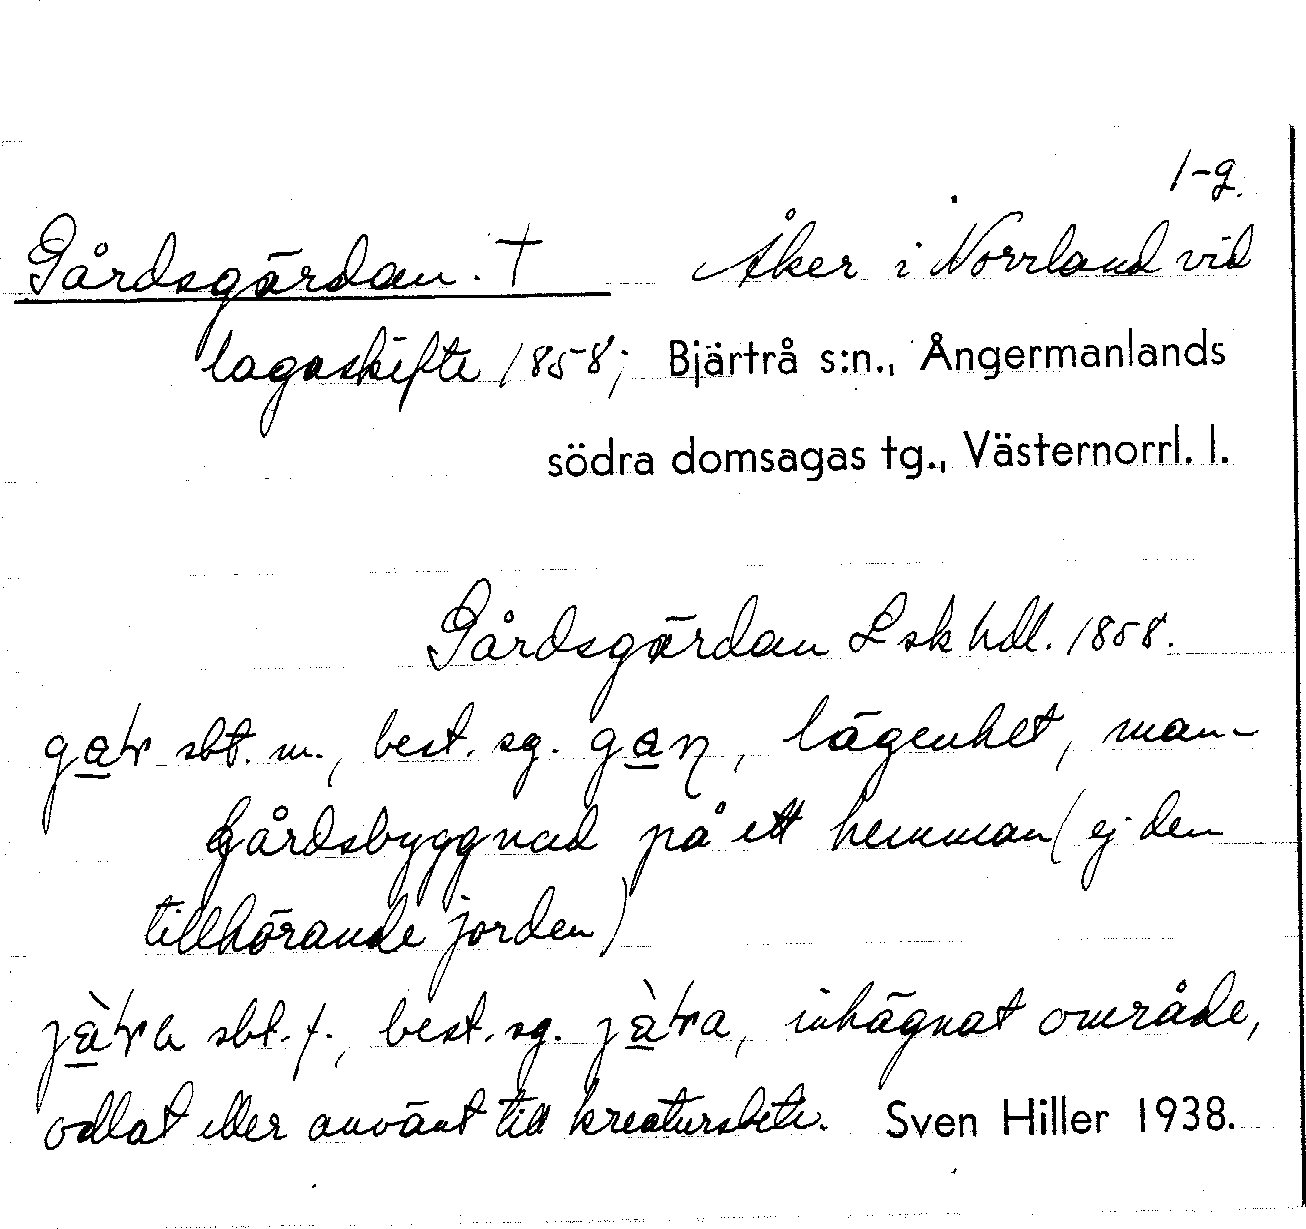 1-g.
Gårdsgärdan. † Åker i Norrland vid
lagaskifte 1858; Bjärtrå s:n., Ångermanlands
södra domsagas tg., Västernorrl. l.
Gårdsgärdan Lskhdl. 1858.
sbt. m., best. sg. lägenhet, man-
gårdsbyggnad på ett hemman (ej den
tillhörande jorden)
sbt. f., best. sg. inhägnat område,
odlat eller använt till kreatursbete. Sven Hiller 1938.